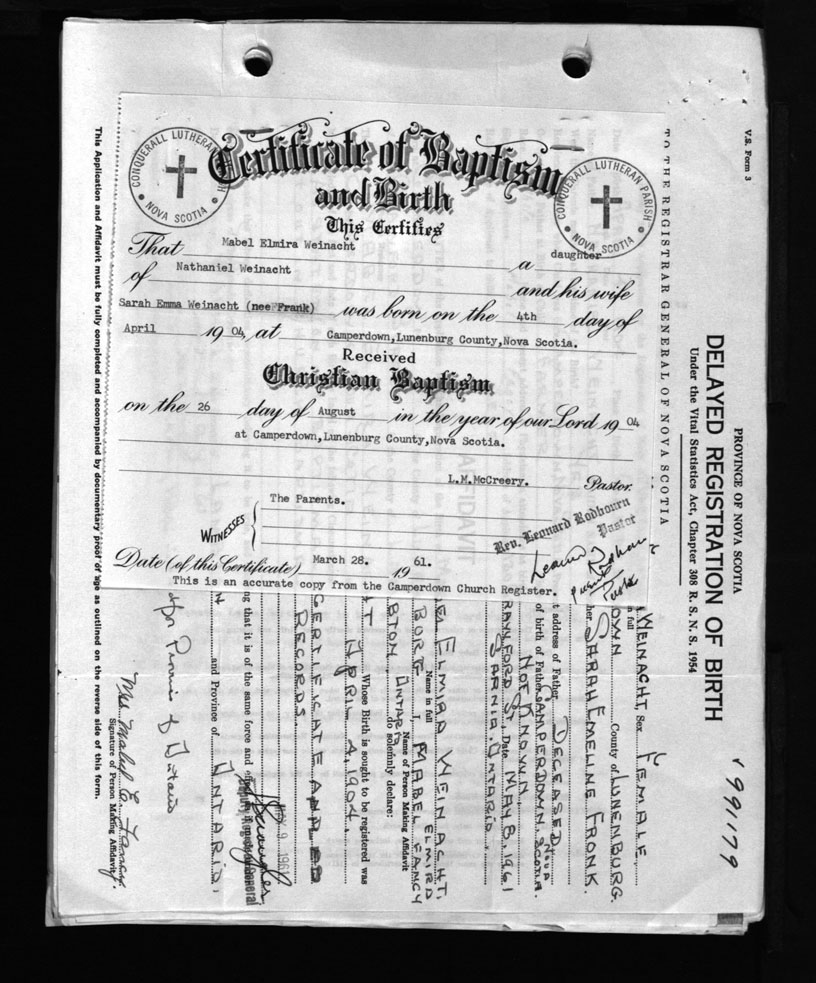 CONQUERALL LUTHERAN PARISH
• NOVA SCOTIA •
Certificate of Baptism
and Birth
CONQUERALL LUTHERAN PARISH
• NOVA SCOTIA •
This Certifies
That Mabel Elmira Weinacht a daughter
of Nathaniel Weinacht and his wife
Sarah Emma Weinacht (nee Frank) was born on the 4th day of
April 19 04, at Camperdown,Lunenburg County,Nova Scotia.
Received
Christian Baptism
on the 26 day of August in the year of our Lord 19 04
at Camperdown,Lunenburg County,Nova Scotia.
L.M.McCreery. Pastor.
WITNESSES { The Parents.
Rev. Leonard Rodbourn
Pastor
Date (of this Certificate) March 28. 19 61.
This is an accurate copy from the Camperdown Church Register.
V.S. Form 3
PROVINCE OF NOVA SCOTIA
DELAYED REGISTRATION OF BIRTH
Under the Vital Statistics Act, Chapter 308 R. S. N. S. 1954
991179
TO THE REGISTRAR GENERAL OF NOVA SCOTIA
WEINACHT, Sex FEMALE
in full
County of LUNENBURG
SARAH EMELINE FRONK.
address of Father DECEASED
of birth of Father CAMPERDOWN, NOVA SCOTIA.
NOT KNOWN.
ST. Date MAY 8, 1961
SARNIA. ONTARIO.
ELMIRA WEINACHT,
Name in full
I, MABEL ELMIRA FANCY
Name of Person Making Affidavit
ONTARIO do solemnly declare:
Whose Birth is sought to be registered was
APRIL 4, 1904.
CERTIFICATE AND
RECORDS.
ng that it is of the same force and
MAY 9 1961
and Province of ONTARIO
Mrs Mabel E. Fancy
Signature of Person Making Affidavit.
This Application and Affidavit must be fully completed and accompanied by documentary proof of age as outlined on the reverse side of this form.